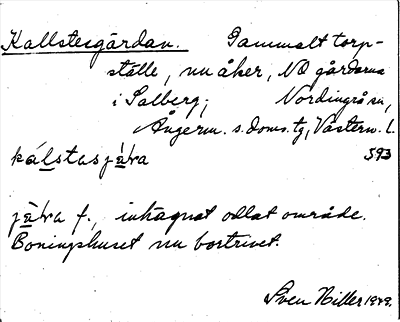 Kallstesgärdan. Gammalt torp-
ställe, nu åker, NO gårdarna
i Salberg; Nordingrå sn,
Ångerm. s. doms. tg, Västern. l.
kálstasjä̀ra 593
jä̀ra f., inhägnat odlat område.
Boningshuset nu bortrivet.
Sven Hiller 1949.